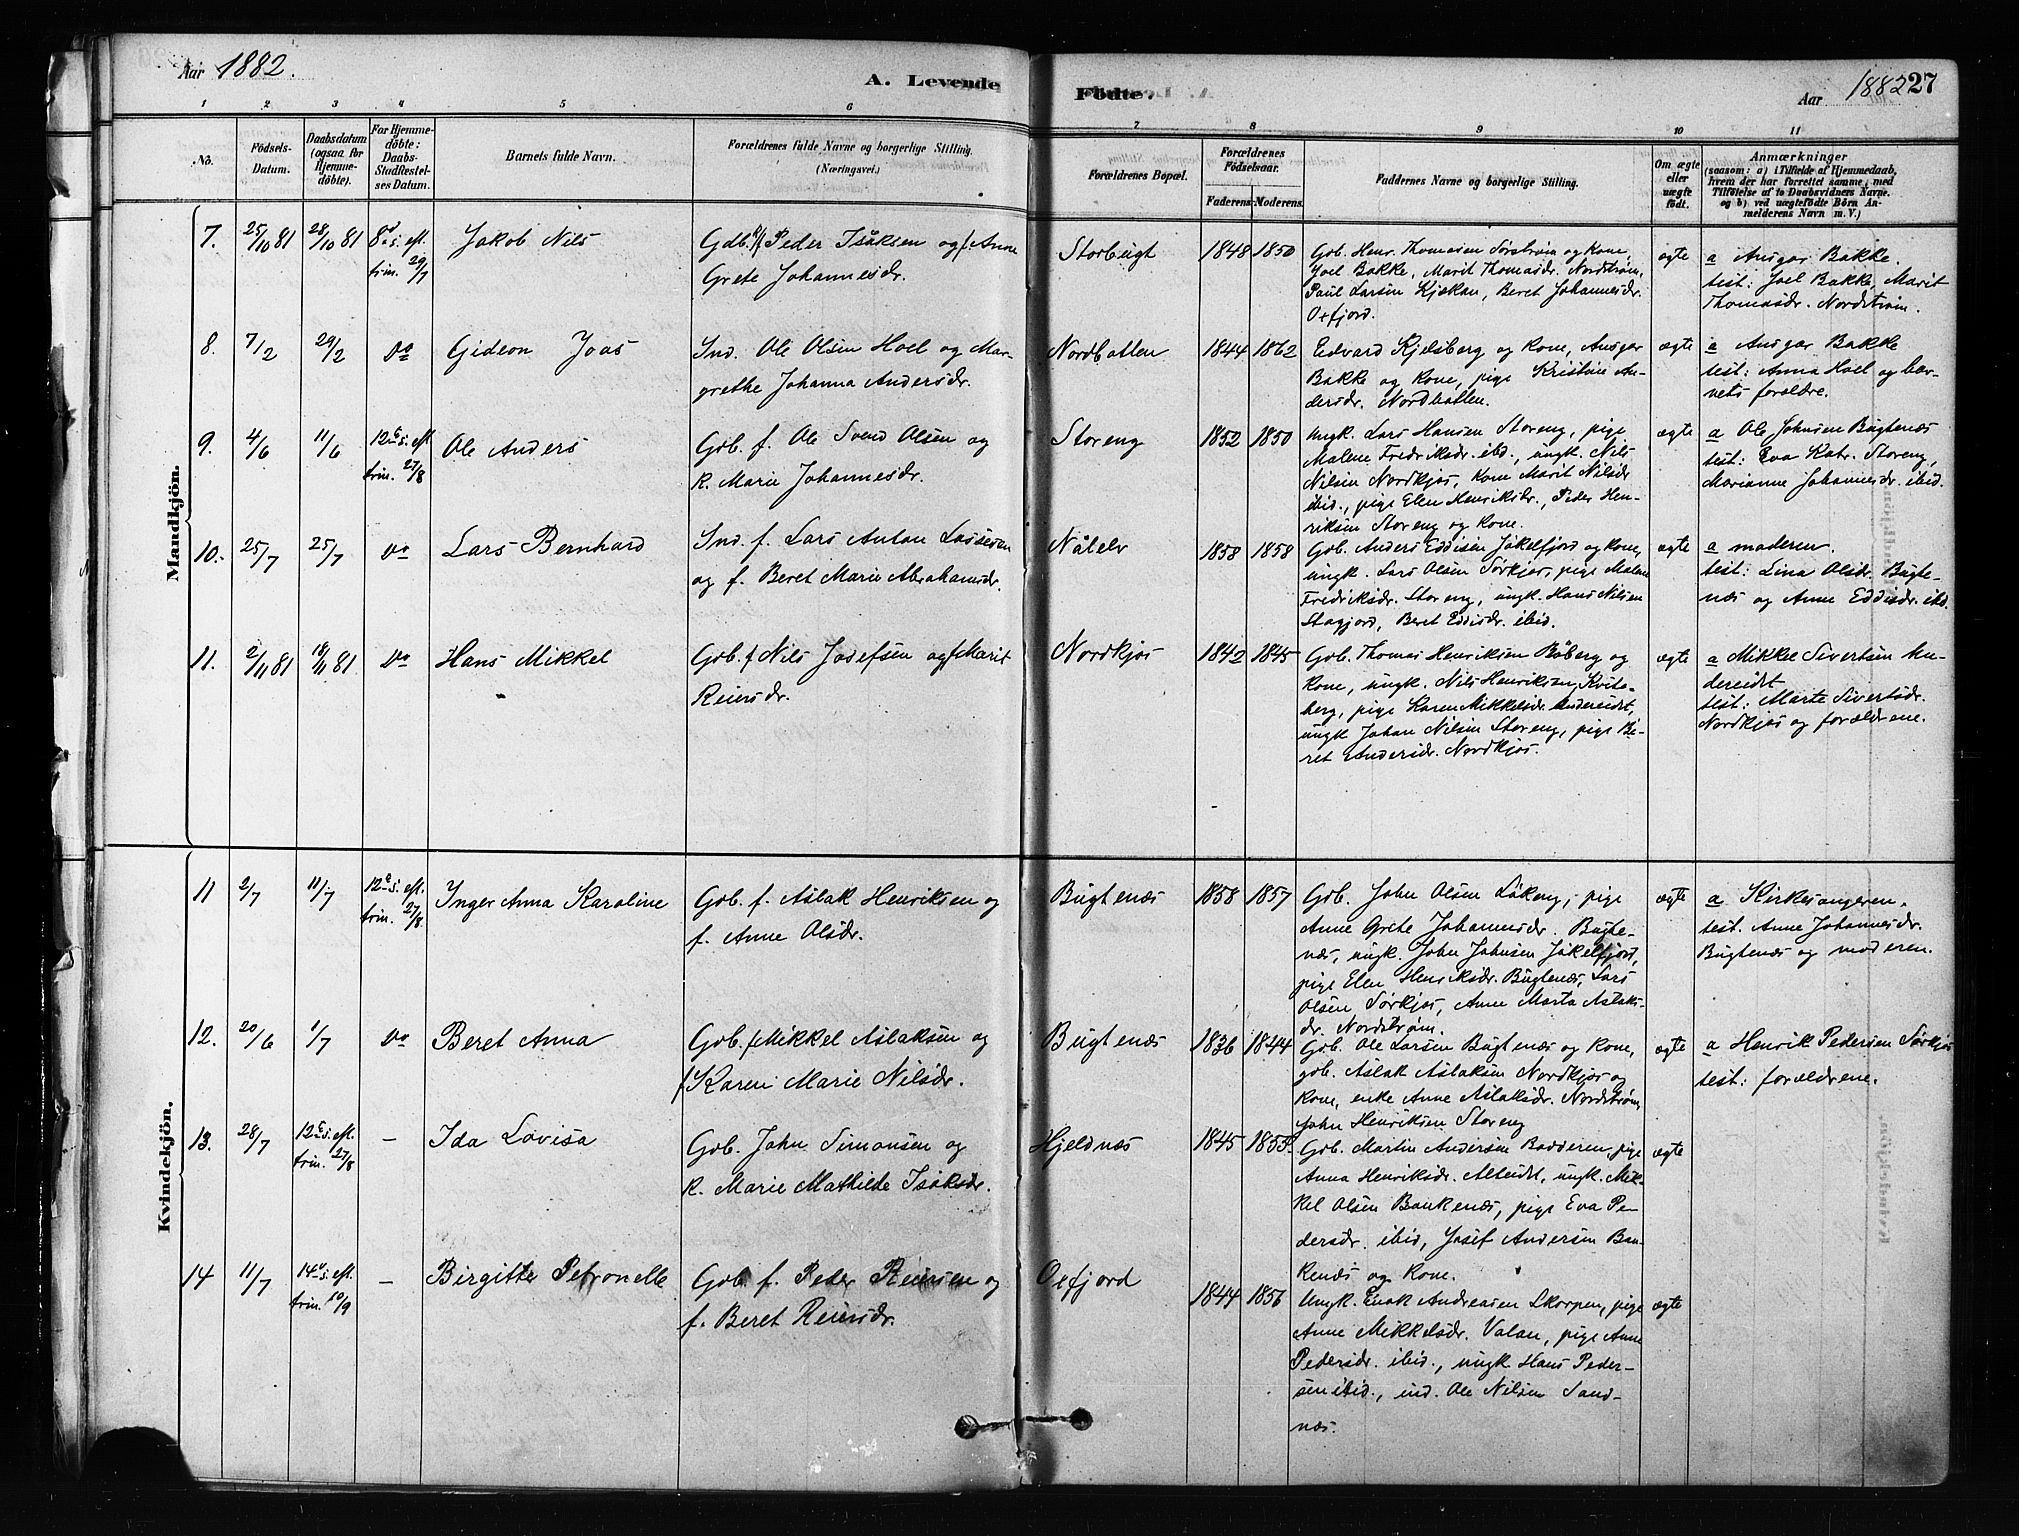 Aar 1882.
A. Levende
Födte.
Aar 1882 27
1 2 3 4 5 6 7 8 9 10 11
No.
Födsels-
Datum.
Daabsdatum
(ogsaa for
Hjemme-
döbte).
For Hjemme-
döbte:
Daabs-
Stadfæstel-
ses Datum.
Barnets fulde Navn.
Forældrenes fulde Navne og borgerlige Stilling.
(Næringsvei.)
Forældrenes Bopæl.
Forældrenes
Födselsaar.
Faderens. Moderens.
Faddernes Navne og borgerlige Stilling.
Om ægte
eller
uægte
födt.
Anmærkninger
(saasom: a) i Tilfælde af Hjemmedaab,
hvem der har forrettet samme, med
Tilföielse af to Daabsvidners Navne.
og b) ved uægtefödte Börn An-
melderens Navn m. V.)
Mandkjön.
7. 25/10 81 28/10 81 8d s. eft.
trin. 29/7
Jakob Nils
Gdb. f. Peder Isaksen og f. Anne
Grete Johannesdr.
Storbugt
1848 1850
Gb. Henr. Thomasen Sørstrøm og kone,
Joel Bakke, Marit Thomasdr. Nordstrøm,
Paul Larsen Kjækan, Beret Johannesdr.
Oxfjord.
ægte
a Ansgar Bakke.
test: Joel Bakke, Marit
Thomasdr. Nordstrøm.
8. 7/2 29/2 do
Gideon Joas
Ind. Ole Olsen Hoel og Mar-
grethe Johanna Andersdr.
Nordbotten
1844 1862
Edvard Kjelsberg og kone, Ansgar
Bakke og kone, pige Kristine An-
dersdr. Nordbotten.
ægte
a Ansgar Bakke
test: Anna Hoel og bar-
nets forældre.
9. 4/6 11/6 12te s. eft
trin. 27/8
Ole Anders
Gb. f. Ole Svend Olsen og
k. Marie Johannesdr.
Storeng
1852 1850
Ungk. Lars Hansen Storeng, pige
Malene Fredr.sdr. ibid., ungk. Nils
Nilsen Nordkjos, kone Marit Nilsdr
ibid., pige Elen Henriksdr., Peder Hen-
riksen Storeng og kone.
ægte
a Ole Johnsen Bugtenæs
test: Eva Katr. Storeng,
Marianne Johannesdr. ibid.
10. 25/7 25/7 do
Lars Bernhard
Ind. f. Lars Anton Lassesen
og f. Beret Marie Abrahamsdr.
Nålelv
1858 1858
Gb. Anders Eddisen Jøkelfjord og kone,
ungk. Lars Olsen Sørkjos, pige Malene
Fredriksdr. Storeng, ungk. Hans Nilsen
Stagjord, Beret Eddisdr. ibid.
ægte
a moderen.
test: Lina Olsdr. Bugte-
næs og Anne Eddisdr. ibd.
11. 2/11 81 18/11 81 do
Hans Mikkel
Gb. f. Nils Josefsen og f. Marit
Reiersdr.
Nordkjos
1842 1845
Gb. Thomas Henriksen Råberg og
kone, ungk. Nils Henriksen Kvita-
berg, pige Karen Mikkelsdr. Undereidet,
ungk Johan Nilsen Storeng, pige Be-
ret Andersdr. Nordkjos.
ægte
a Mikkel Sivertsen Un-
dereidet
test: Marte Sivertsdr.
Nordkjos og forældrene.
Kvindekjön.
11 2/7 11/7 12te s. eft.
trin. 27/8.
Inger Anna Karoline
Gb. f. Aslak Henriksen og
f. Anne Olsdr.
Bugtenæs
1858 1857
Gb. John Olsen Låkeng, pige
Anne Grete Johannesdr. Bugte-
næs, ungk. John Johnsen Jøkelfjord,
pige Elen Henriksdr. Bugtenæs, Lars
Olsen Sørkjos, Anne Marta Aslaks-
dr. Nordstrøm.
ægte
a Kirkesangeren.
test. Anne Johannesdr.
Bugtenæs og moderen.
12. 20/6 1/7 do
Beret Anna
Gb. f. Mikkel Aslaksen og
f. Karen Marie Nilsdr.
Bugtenæs
1836 1844
Gb. Ole Larsen Bugtenæs og kone,
gb. Aslak Aslaksen Nordkjos og
kone, enke Anne Aslaksdr. Nordstrøm,
John Henriksen Storeng
ægte
a Henrik Pedersen Sørkjos
test: forældrene.
13. 28/7 12te s. eft.
trin. 27/8 —
Ida Lovisa
Gb. John Simonsen og
k. Marie Mathilde Isaksdr.
Hjeldnæs
1845 1855
Gb. Martin Andersen Badderen, pige
Anna Henriksdr. Alteidet, ungk. Mik-
kel Olsen Bankenæs, pige Eva Pe-
dersdr. ibid, Josef Andersen Ban-
kenæs og kone.
ægte
14 11/7 14de s. eft.
trin. 10/9 —
Birgitte Petronelle
Gb. f. Peder Reiersen og
f. Beret Reiersdr.
Oxfjord
1844 1856
Ungk. Enok Andreasen Skorpen, pige
Anne Mikkelsdr. Valan, pige Anne
Pedersdr. ibid., ungk Hans Peder-
sen ibid., ind. Ole Nilsen Sand-
næs.
ægte